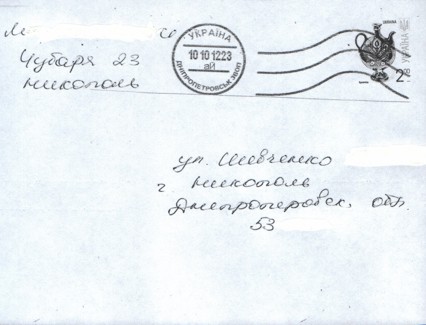 Чубаря 23
Никополь
УКРАЇНА
10 10 12 23
ДНІПРОПЕТРОВСЬК
УКРАЇНА
ул. Шевченко
г. Никополь
Днепропетровск. обл.
53